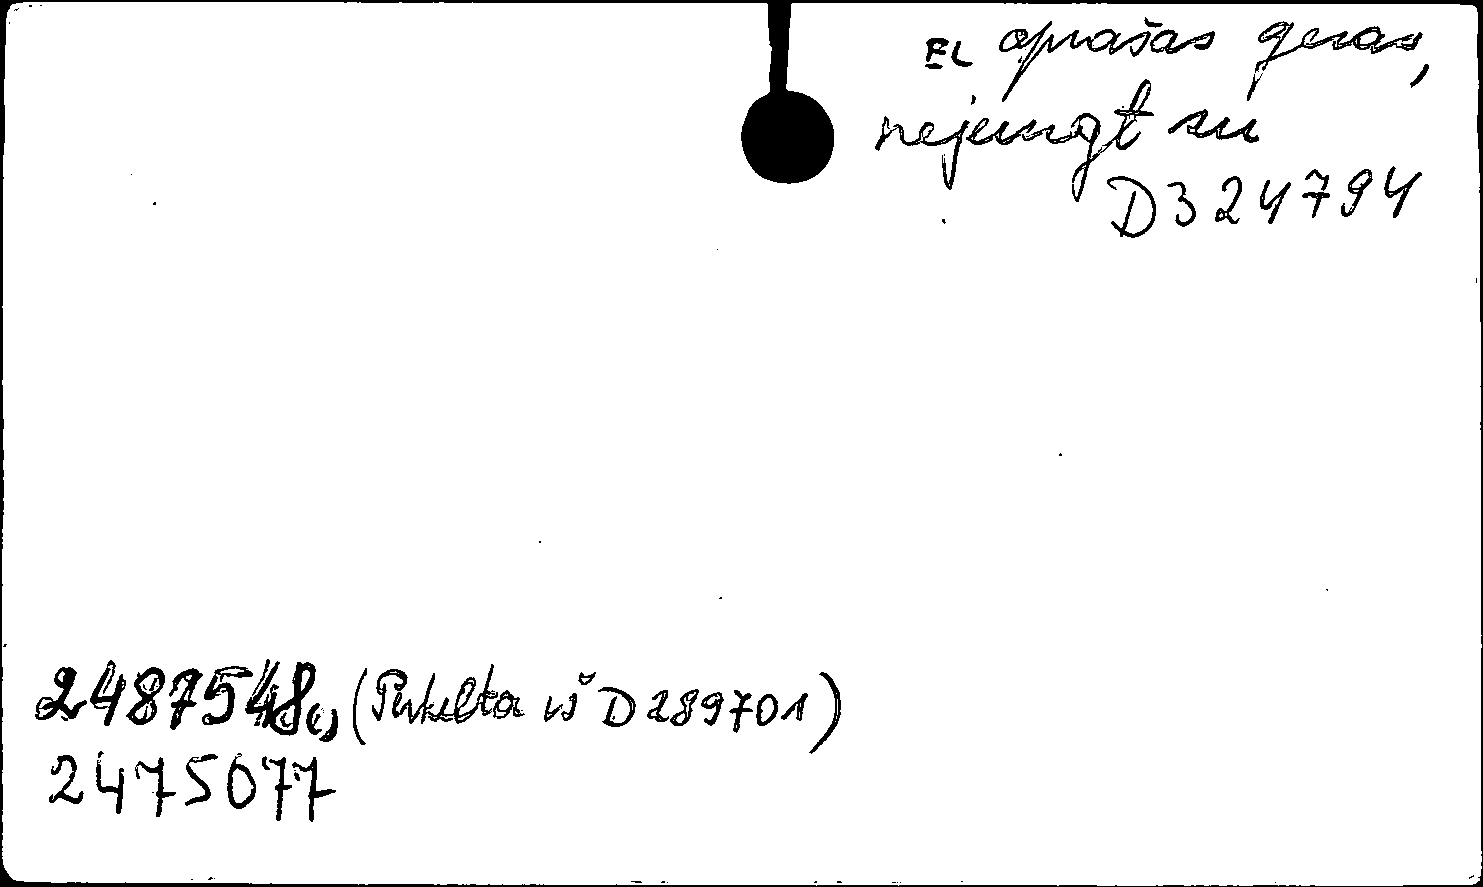 EL aprašas geras,
nejungt su
D324794
2487548, (Perkelta iš D289701)
2475077